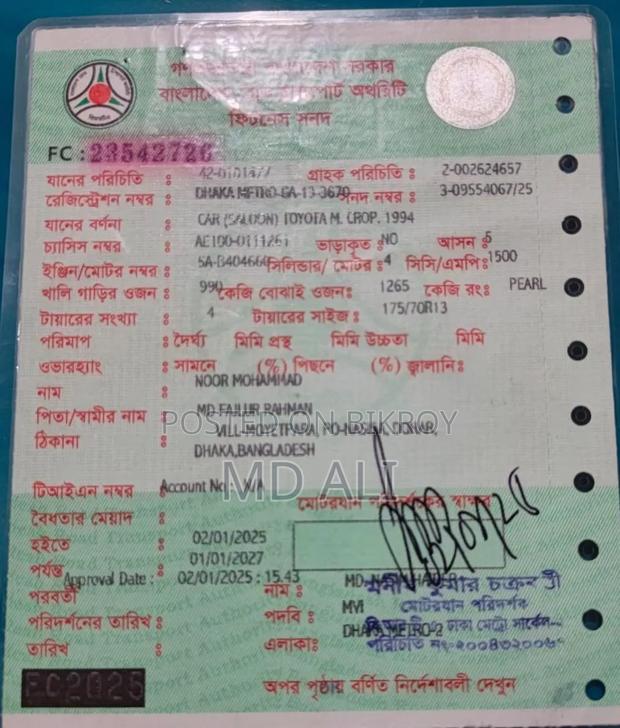 গণপ্রজাতন্ত্রী বাংলাদেশ সরকার
বাংলাদেশ রোড ট্রান্সপোর্ট অথরিটি
ফিটনেস সনদ
FC : 23542726
যানের পরিচিতি : গ্রাহক পরিচিতি : 2-002624657
রেজিস্ট্রেশন নম্বর : DHAKA METRO-GA-13-3670 সনদ নম্বর : 3-09554067/25
যানের বর্ণনা : CAR (SALOON) TOYOTA M. CROP. 1994
চ্যাসিস নম্বর : AE100-0111261 ভাড়াকৃত : NO আসন : 5
ইঞ্জিন/মোটর নম্বর : 5A-B404660 সিলিন্ডার/ মোটর : 4 সিসি/এমপি: 1500
খালি গাড়ির ওজন : 990 কেজি বোঝাই ওজন: 1265 কেজি রং: PEARL
টায়ারের সংখ্যা : 4 টায়ারের সাইজ : 175/70R13
পরিমাপ : দৈর্ঘ্য মিমি প্রস্থ মিমি উচ্চতা মিমি
ওভারহ্যাং : সামনে (%) পিছনে (%) জ্বালানি:
নাম : NOOR MOHAMMAD
পিতা/স্বামীর নাম : MD FAILUR RAHMAN
POSTED ON BIKROY
ঠিকানা : DOHAR,
DHAKA,BANGLADESH
MD ALI
টিআইএন নম্বর : Account No : N/A
মোটরযান পরিদর্শকের স্বাক্ষর
বৈধতার মেয়াদ
হইতে : 02/01/2025
পর্যন্ত : 01/01/2027
Approval Date : 02/01/2025 : 15.43
নাম :
পরবর্তী
পদবি : MVI মোটরযান পরিদর্শক
পরিদর্শনের তারিখ :
এলাকা: DHAKA METRO-2
তারিখ :
FC2025
অপর পৃষ্ঠায় বর্ণিত নির্দেশাবলী দেখুন